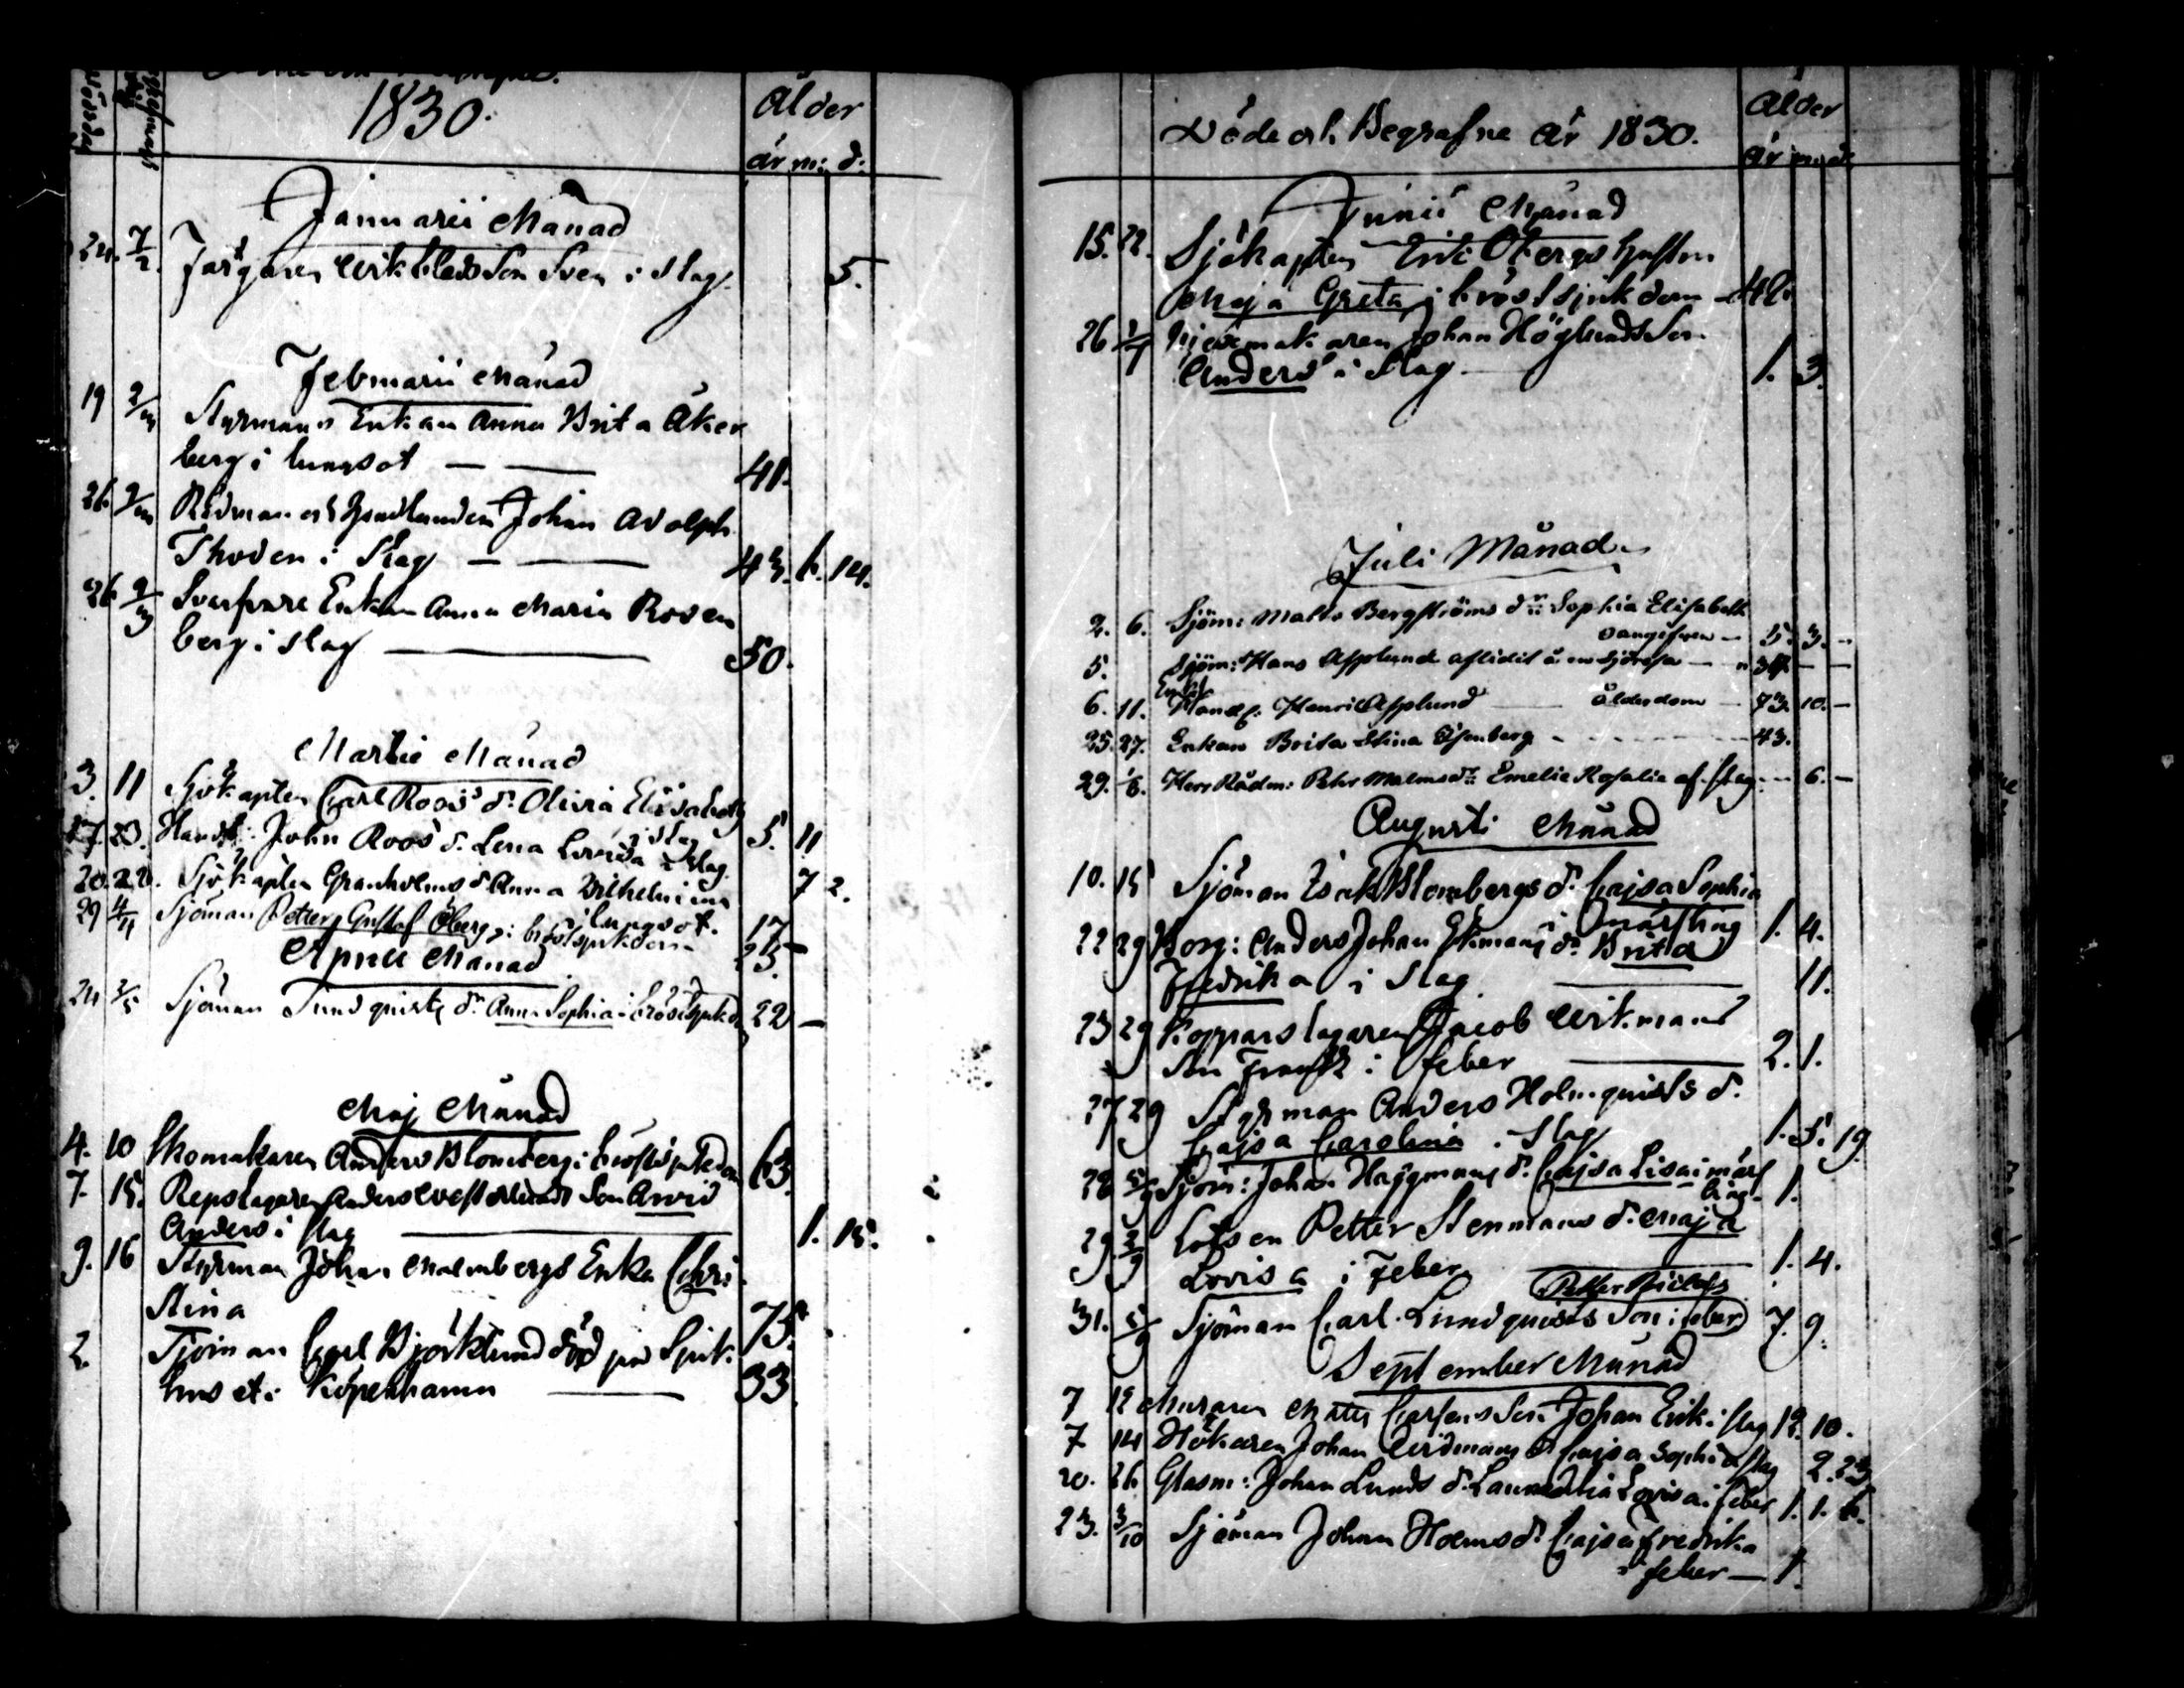 1830.
Ålder
år m: d:
Januarii Månad
24. 7/2. Färgaren Wikblads Son Sven i Slag. 5.
Februarii Månad
19 2/3 Styrmans Enkan Anna Brita Åker
berg i lungsot — — 41.
26. 7/3 Rådman och Handlanden Johan Adolph
Thoden i Slag — — 43. 6. 14.
26 9/3 Svarfvare Enkan Anna Maria Rosen
berg i slag — 50.
Martii Månad
3. 11 Sjökapten Carl Roos's dr Olivia Elisabeth
i slag 5. 11
17. 23. Handl: John Roos d. Lena Lovisa i Slag. 7 2.
20. 22. Sjökapten Granholms d. Anna Wilhelmina
i lungsot. 17
29 4/4 Sjöman Petter Gustaf Öberg i bröstsjukdom 25. —
April Månad
24 2/5 Sjöman Sundquists dr Anna Sophia i bröstsjukd 22 —
Maj Månad
4. 10 Skomakaren Anders Blomberg i bröstsjukdom 63.
7. 15. Repslagaren Anders Westerlunds Son Arvid
Anders i slag — 1. 15.
9. 16 Styrman Johan Malmbergs Enka Chri
stina 75.
2. Sjöman Carl Björklund död på Sjuk
huset i Köpenhamn — 33.
Döde och Begrafne år 1830.
Ålder
år m. d.
Junii Månad
15. 22. Sjökapten Eric Öbergs hustru
Maja Greta i bröstsjukdom — 42.
26 1/7 Johan Höglunds Son
Anders i Slag — 1. 3.
Juli Månad
2. 6. Sjöm: Matts Bergströms dr: Sophia Elisabeth
— 5. 3. —
5. Sjöm: Hans Asplund aflidit å en sjöresa — 34. — —
Enkl
6. 11. Handl. Henric Asplund — Ålderdom — 73. 10. —
25. 27. Enkan Brita Stina — 43.
29. Herr Rådm: Petr Malms dr: Emelie Rosalie af slag. — 6. —
Augusti Månad
10. 15 Sjöman Isak Blombergs d. Cajsa Sophia
i mässling 1. 4.
22 29 Borg: Anders Johan Ekmans dr Brita
Fredrika i Slag — 11.
23 29 Kopparslagaren Jacob Wikmans
Son Frans i feber — 2. 1.
27. 29 Styrman Anders Holmquists d.
Cajsa Carolina i Slag 1. 5. 19.
28 5/9 Sjöm: Johan Häggmans d. Cajsa Lisa i mäss
ling 1.
29 3/9 Lotsen Petter Stenmans d. Maja
Lovisa i feber — 1. 4.
31. 5/9 Sjöman Carl Lundquists Son i feber 7. 9.
September Månad
7 12 Muraren Matts Carlsons Son Johan Erik i slag 12. 10.
7 14 Hökaren Johan Widmans d. Cajsa Sophia slag 2. 23
20. 26 Glasm: Johan Lunds d. Lovisa i feber 1. 1. 6.
23. 3/10 Sjöman Johan Holms d. Cajsa Fredrika
i feber — 1.